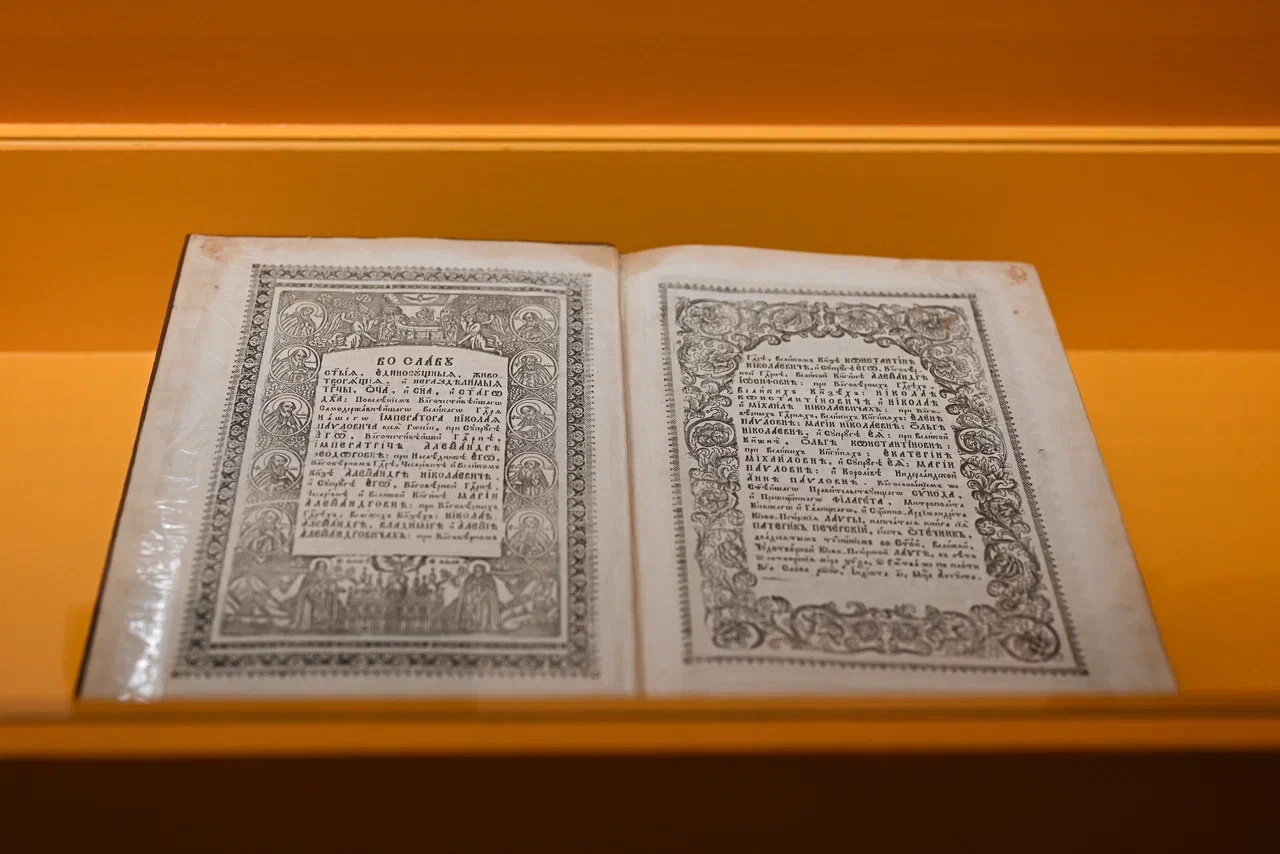 ВО СЛАВУ
СТЫѦ, ЕДИНОСУЩНЫѦ, ЖИВО-
ТВОРѦЩІѦ, И НЕРАЗДѢЛИМЫѦ
ТРЦЫ, ОЦА, И СНА, И СТАГѠ
ДХА: Повелѣнїемъ Бл҃гочестивѣйшагѡ
Самодержавнѣйшагѡ Великагѡ Гдⷭ҇рѧ
нашегѡ ІМПЕРАТОРА НІКОЛАѦ
ПАУЛОВИЧА всеѧ Рѡссїи, при Супрⷹ҇гѣ
ЕГѠ, Бл҃гочестивѣйшей Гдⷭ҇рнѣ,
ІМПЕРАТРІЦѢ АЛЕѮАНДРѢ
ѲЕОДѠРОВНѢ: при Наслѣдникѣ ЕГѠ,
Бл҃говѣрномъ Гдⷭ҇рѣ, Цесаревичѣ и Великомъ
Кн҃зѣ АЛЕѮАНДРѢ НІКОЛАЕВИЧѢ,
и Супрⷹ҇гѣ ЕГѠ, Бл҃говѣрной Гдⷭ҇рнѣ,
Цесаревнѣ и Великой Кн҃гинѣ МАРІИ
АЛЕѮАНДРОВНѢ: при Бл҃говѣрныхъ
Гдⷭ҇рѣхъ, Великихъ Кн҃зехъ: НІКОЛАѢ
АЛЕѮАНДРѢ, ВЛАДИМІРѢ и АЛЕѮІѢ
АЛЕѮАНДРОВИЧАХЪ: при Бл҃говѣрномъ
Гдⷭ҇рѣ, Великомъ Кн҃зѣ КѠНСТАНТІНѢ
НІКОЛАЕВИЧѢ, и Супрⷹ҇гѣ ЕГѠ, Бл҃говѣр-
ной Гдⷭ҇рнѣ, Великой Кн҃гинѣ АЛЕѮАНДРѢ
ІѠСИФОВНѢ: при Бл҃говѣрныхъ Гдⷭ҇рѣхъ,
Великихъ Кн҃зехъ: НІКОЛАѢ
КѠНСТАНТІНОВИЧѢ и НІКОЛАѢ
и МІХАИЛѢ НІКОЛАЕВИЧАХЪ: при Бл҃го-
вѣрныхъ Гдⷭ҇рнѧхъ, Великихъ Кн҃гинѧхъ: ЕЛЕНѢ
ПАУЛОВНѢ: МАРІИ НІКОЛАЕВНѢ: ОЛЬГѢ
НІКОЛАЕВНѢ, и Супрⷹ҇гѣ ЕѦ: при Великой
Кн҃жнѣ, ОЛЬГѢ КѠНСТАНТІНОВНѢ:
при Великихъ Кн҃гинѧхъ: ЕКАТЕРІНѢ
МІХАЙЛОВНѢ, и Супрⷹ҇гѣ ЕѦ: МАРІИ
ПАУЛОВНѢ: и Королевѣ Нидерландской
АННѢ ПАУЛОВНѢ. Бл҃гословенїемъ же
Ст҃ѣйшагѡ Правительствующагѡ СУНОДА,
и Преѡсщ҃еннагѡ ФІЛАРЕТА, Митрополїта
Кїевскагѡ и Галицкагѡ, и Сщ҃енно-Архімандріта
Кїево-Печерскїѧ ЛАУРЫ, напечатасѧ книга сїѧ
ПАТЕРІКЪ ПЕЧЕРСКІЙ, єсть ОТЕЧНИКЪ,
двадесѧтымъ тисненїемъ во Ст҃ой, Великой,
Чудотворной Кїево-Печерской ЛАУРѢ, въ лѣто